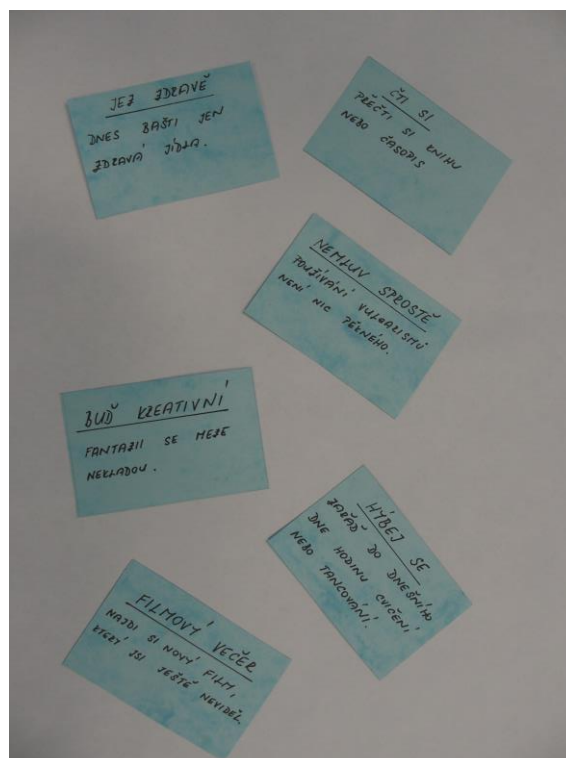 JEZ ZDRAVĚ
DNES BAŠTI JEN
ZDRAVÁ JÍDLA.
ČTI SI
PŘEČTI SI KNIHU
NEBO ČASOPIS
NEMLUV SPROSTĚ
POUŽÍVÁNÍ VULGARISMŮ
NENÍ NIC PĚKNÉHO.
BUĎ KREATIVNÍ
FANTAZII SE MEZE
NEKLADOU.
HÝBEJ SE
ZAŘAĎ DO DNEŠNÍHO
DNE HODINU CVIČENÍ
NEBO TANCOVÁNÍ.
FILMOVÝ VEČER
NAJDI SI NOVÝ FILM,
KTERÝ JSI JEŠTĚ NEVIDĚL